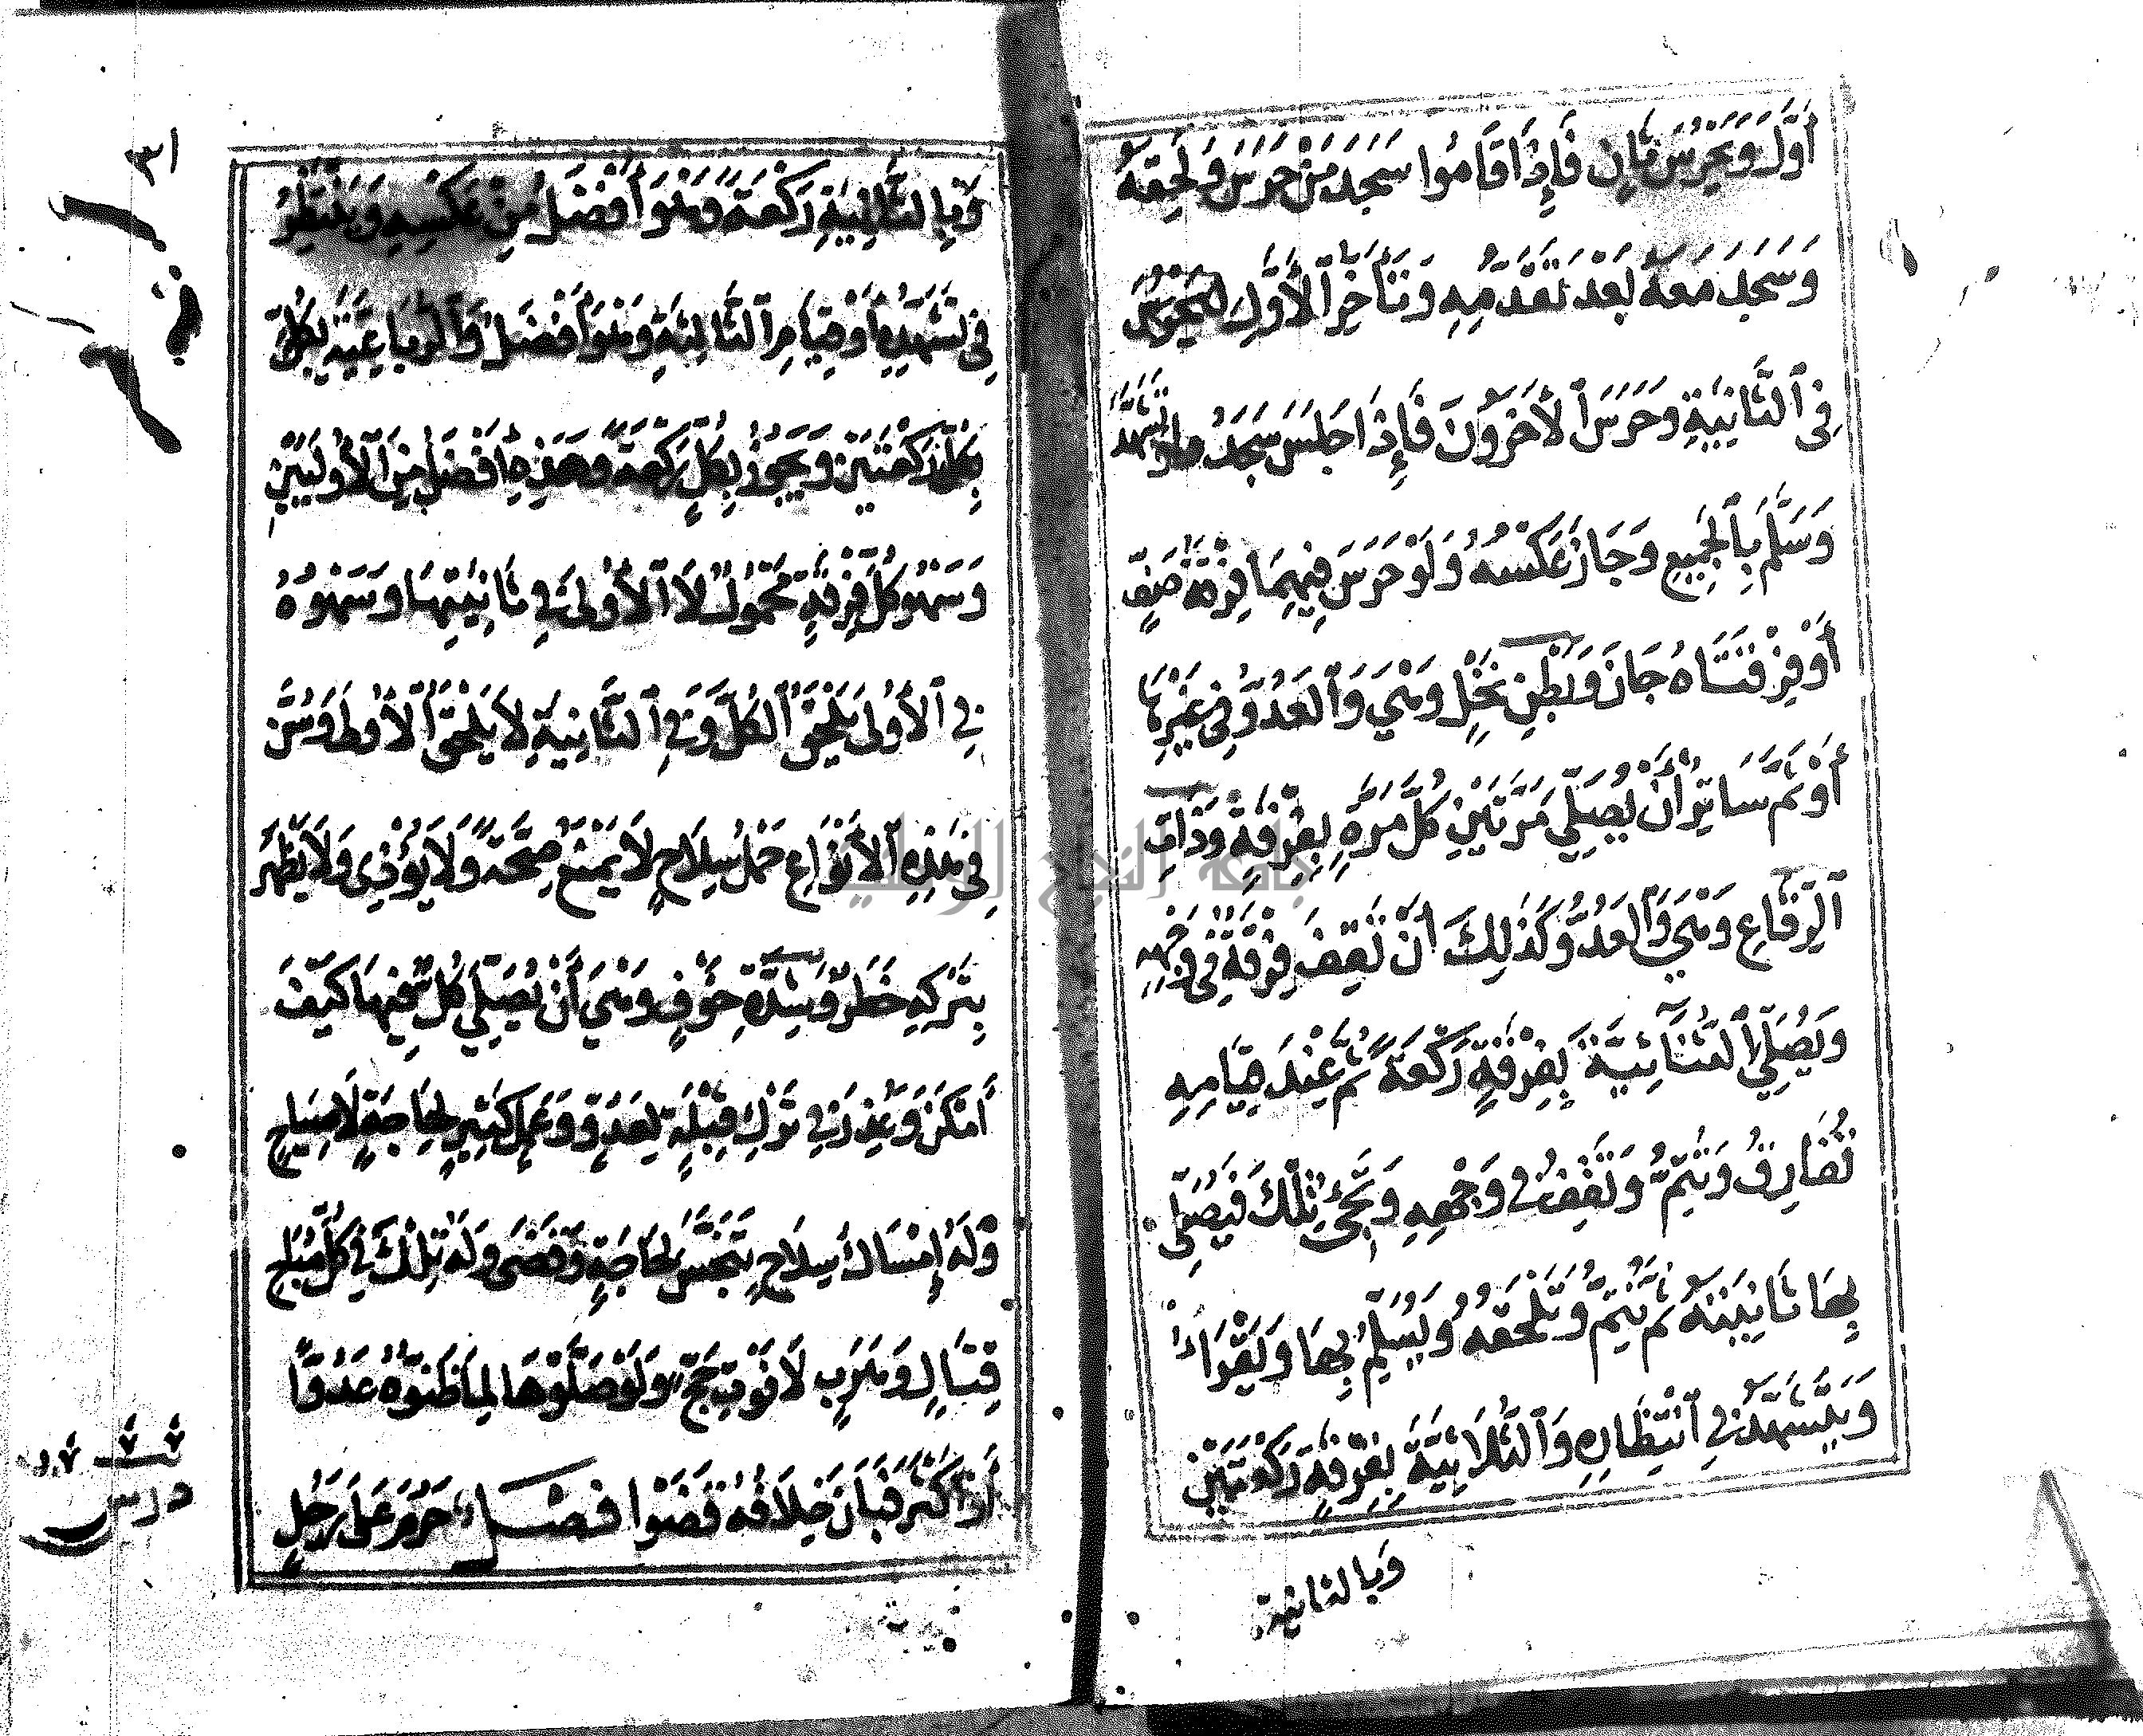 أَوَّلَ وَيَحْرُسَ ثَانٍ فَإِذَا قَامُوا سَجَدَ مَنْ حَرَسَ وَلَحِقَهُ
وَسَجَدَ مَعَهُ بَعْدَ تَقَدُّمِهِ وَتَأَخُّرِ ٱلْأَوَّلِ لِيَحْرُسَ
فِي ٱلثَّانِيَةِ وَحَرَسَ ٱلْآخَرُونَ فَإِذَا جَلَسَ سَجَدُوا وَتَشَهَّدَ
وَسَلَّمَ بِالْجَمِيعِ وَجَازَ عَكْسُهُ وَلَوْ حَرَسَ فِيهِمَا فِرْقَةُ صَفٍّ
أَوْ فِرْقَتَاهُ جَازَ وَبَطْنِ نَخْلٍ وَهْيَ وَٱلْعَدُوُّ فِي غَيْرِهَا
أَوْ ثَمَّ سَاتِرٌ أَنْ يُصَلِّيَ مَرَّتَيْنِ كُلَّ مَرَّةٍ بِفِرْقَةٍ وَذَاتِ
ٱلرِّقَاعِ وَهْيَ وَٱلْعَدُوُّ كَذَلِكَ أَنْ تَقِفَ فِرْقَةٌ فِي وَجْهِهِ
وَيُصَلِّيَ ٱلثُّنَائِيَّةَ بِفِرْقَةٍ رَكْعَةً ثُمَّ عِنْدَ قِيَامِهِ
تُفَارِقُ وَتُتِمُّ وَتَقِفُ فِي وَجْهِهِ وَتَجِيءُ تِلْكَ فَيُصَلِّي
بِهَا ثَانِيَتَهُ ثُمَّ تُتِمُّ وَتَلْحَقُهُ وَيُسَلِّمُ بِهَا وَيَقْرَأُ
وَيَتَشَهَّدُ فِي ٱنْتِظَارِهِ وَٱلثُّلَاثِيَّةَ بِفِرْقَةٍ رَكْعَتَيْنِ
وَبِالثَّانِيَةِ
٣١
وَبِالثَّانِيَةِ رَكْعَةً وَهُوَ أَفْضَلُ مِنْ عَكْسِهِ وَيَنْتَظِرُ
فِي تَشَهُّدِهِ أَوْ قِيَامِ ٱلثَّالِثَةِ وَهُوَ أَفْضَلُ وَٱلرُّبَاعِيَّةَ بِكُلٍّ
بِكُلٍّ رَكْعَتَيْنِ وَيَجُوزُ بِكُلٍّ رَكْعَةً وَهَذِهِ أَفْضَلُ مِنَ ٱلْأُولَيَيْنِ
وَسَهْوُ كُلِّ فِرْقَةٍ مَحْمُولٌ لَا ٱلْأُولَى فِي ثَانِيَتِهَا وَسَهْوُهُ
فِي ٱلْأُولَى يَلْحَقُ ٱلْكُلَّ وَفِي ٱلثَّانِيَةِ لَا يَلْحَقُ ٱلْأُولَى وَسُنَّ
فِي هَذِهِ ٱلْأَنْوَاعِ حَمْلُ سِلَاحٍ لَا يَمْنَعُ صِحَّةً وَلَا يُؤْذِي وَلَا يَظْهَرُ
بِتَرْكِهِ خَطَرٌ وَشِدَّةِ خَوْفٍ وَهْيَ أَنْ يُصَلِّيَ كُلٌّ فِيهَا كَيْفَ
أَمْكَنَ وَعُذِرَ فِي تَرْكِ قِبْلَةٍ لِعَدُوٍّ وَعَمَلٍ كَثِيرٍ لِحَاجَةٍ لَا صِيَاحٍ
وَلَهُ إِمْسَاكُ سِلَاحٍ تَنَجَّسَ لِحَاجَةٍ وَقَضَى وَلَهُ تِلْكَ فِي كُلِّ مُبَاحِ
قِتَالٍ وَهَرَبٍ لَا فَوْتِ حَجٍّ وَلَوْ صَلَّوْهَا لِمَا ظَنُّوهُ عَدُوًّا
أَوْ أَكْثَرَ فَبَانَ خِلَافُهُ قَضَوْا فصـــل حَرُمَ عَلَى رَجُلٍ
درس